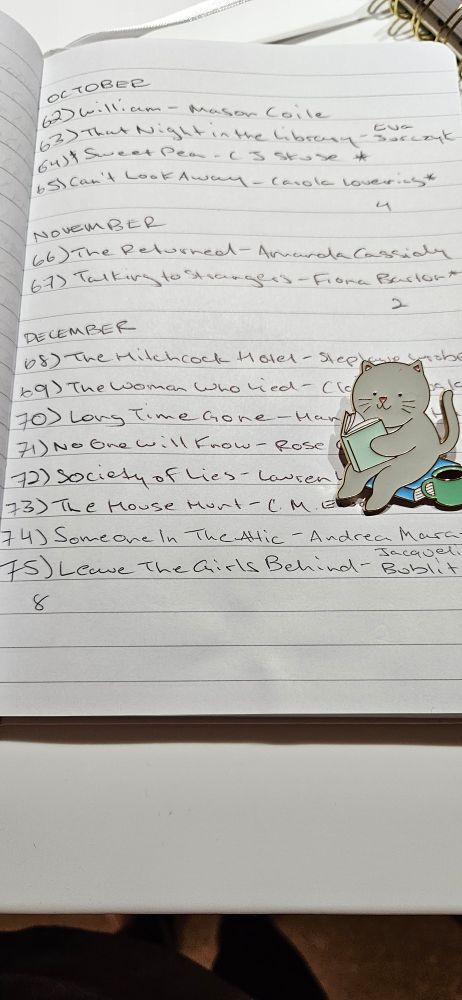 OCTOBER
62) William - Mason Coile
63) That Night in the Library - Eva Jurczyk
64) * Sweet Pea - C J Skuse *
65) Can't Look Away - Carola Lovering *
4
NOVEMBER
66) The Returned - Amanda Cassidy
67) Talking to Strangers - Fiona Barton *
2
DECEMBER
68) The Hitchcock Hotel - Stephanie Wrobe
69) The Woman Who Lied - Cla
70) Long Time Gone - Han
71) No One Will Know - Rose
72) Society of Lies - Lauren
73) The House Hunt - C. M. E
74) Someone In The Attic - Andrea Mara
75) Leave The Girls Behind - Jacqueli Bublit
8